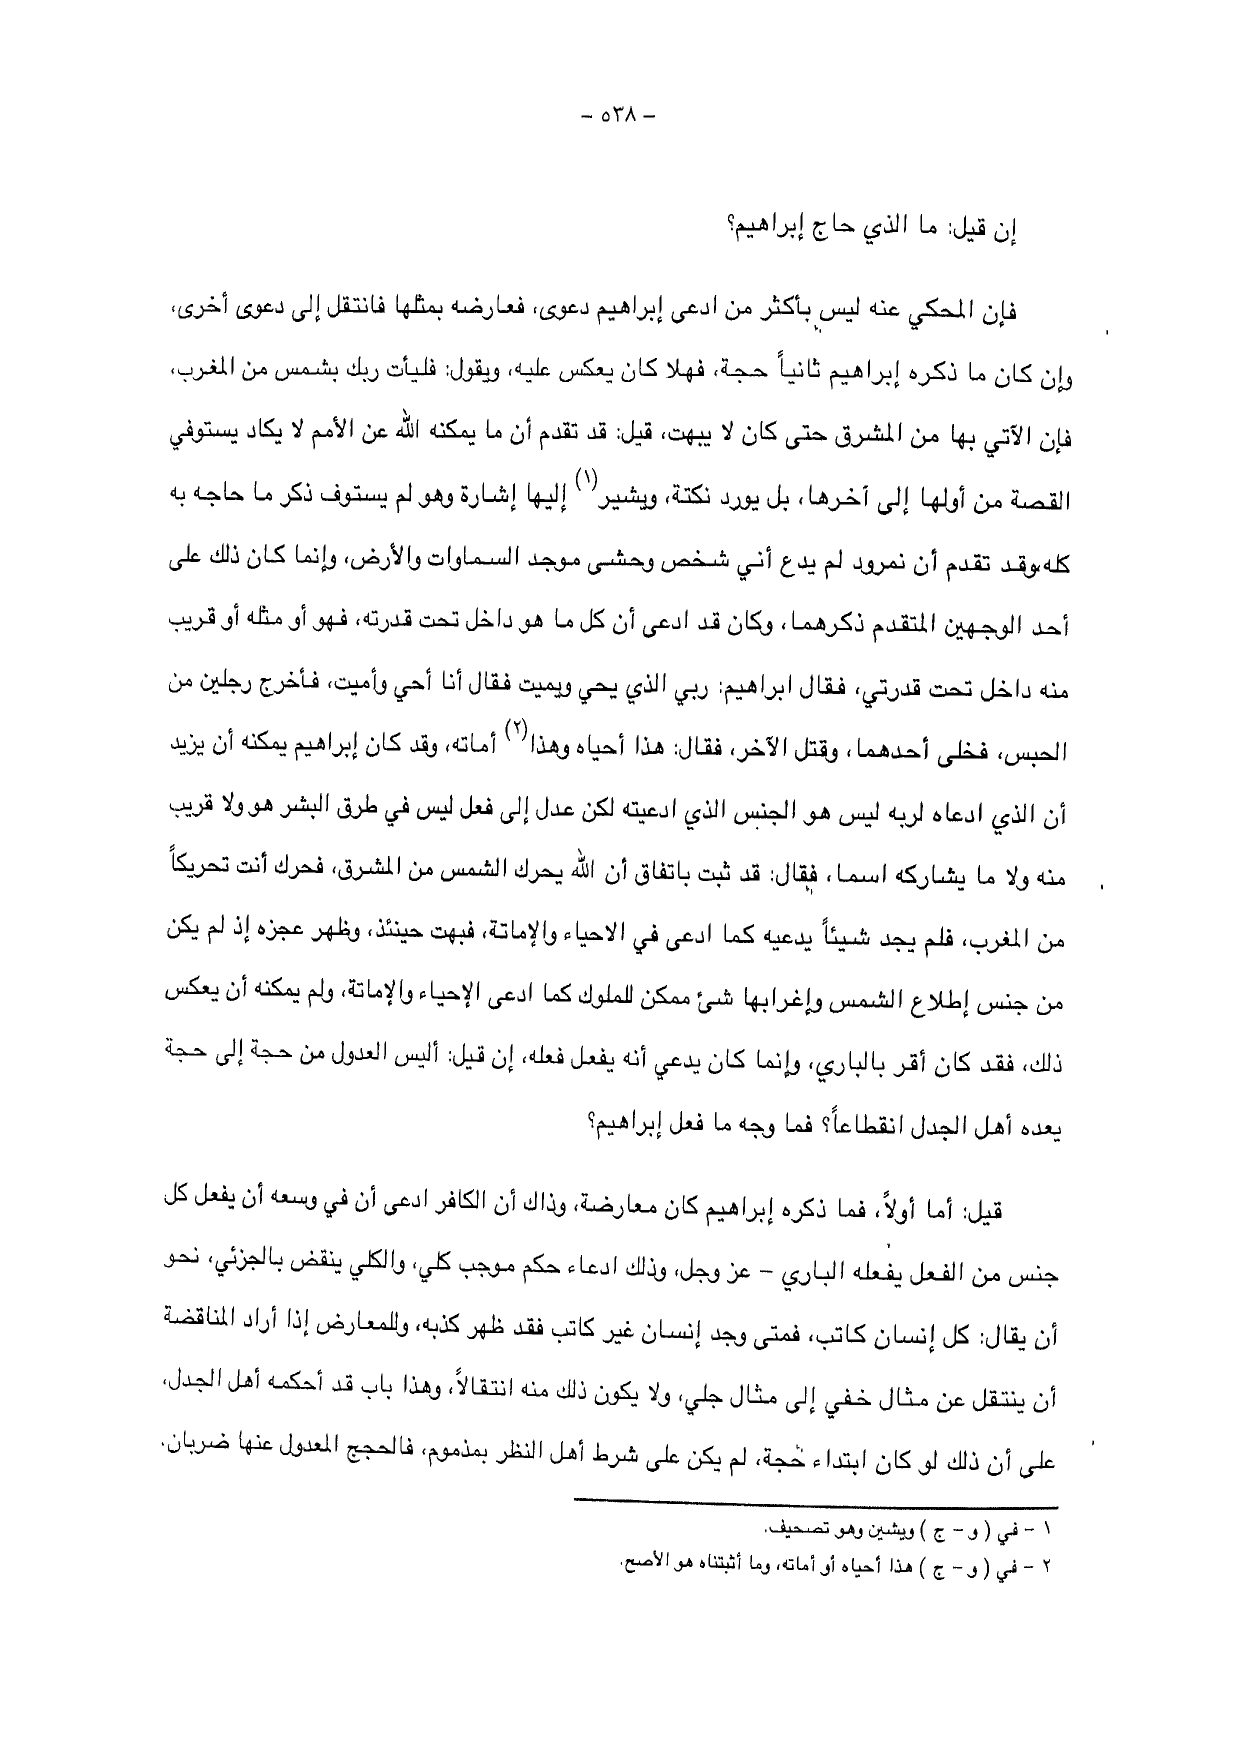 – ٥٣٨ –
إن قيل: ما الذي حاج إبراهيم؟
فإن المحكي عنه ليس بأكثر من ادعى إبراهيم دعوى، فعارضه بمثلها فانتقل إلى دعوى أخرى،
وإن كان ما ذكره إبراهيم ثانياً حجة، فهلا كان يعكس عليه، ويقول: فليأت ربك بشمس من المغرب،
فإن الآتي بها من المشرق حتى كان لا يبهت، قيل: قد تقدم أن ما يمكنه الله عن الأمم لا يكاد يستوفي
القصة من أولها إلى آخرها، بل يورد نكتة، ويشير(١) إليها إشارة وهو لم يستوف ذكر ما حاجه به
كله، وقد تقدم أن نمرود لم يدع أني شخص وحشي موجد السماوات والأرض، وإنما كان ذلك على
أحد الوجهين المتقدم ذكرهما، وكان قد ادعى أن كل ما هو داخل تحت قدرته، فهو أو مثله أو قريب
منه داخل تحت قدرتي، فقال ابراهيم: ربي الذي يحي ويميت فقال أنا أحي وأميت، فأخرج رجلين من
الحبس، فخلى أحدهما، وقتل الآخر، فقال: هذا أحياه وهذا(٢) أماته، وقد كان إبراهيم يمكنه أن يزيد
أن الذي ادعاه لربه ليس هو الجنس الذي ادعيته لكن عدل إلى فعل ليس في طرق البشر هو ولا قريب
منه ولا ما يشاركه اسما، فقال: قد ثبت باتفاق أن الله يحرك الشمس من المشرق، فحرك أنت تحريكاً
من المغرب، فلم يجد شيئاً يدعيه كما ادعى في الاحياء والإماتة، فبهت حينئذ، وظهر عجزه إذ لم يكن
من جنس إطلاع الشمس وإغرابها شئ ممكن للملوك كما ادعى الإحياء والإماتة، ولم يمكنه أن يعكس
ذلك، فقد كان أقر بالباري، وإنما كان يدعي أنه يفعل فعله، إن قيل: أليس العدول من حجة إلى حجة
يعده أهل الجدل انقطاعاً؟ فما وجه ما فعل إبراهيم؟
قيل: أما أولاً، فما ذكره إبراهيم كان معارضة، وذاك أن الكافر ادعى أن في وسعه أن يفعل كل
جنس من الفعل يفعله الباري – عز وجل، وذلك ادعاء حكم موجب كلي، والكلي ينقض بالجزئي، نحو
أن يقال: كل إنسان كاتب، فمتى وجد إنسان غير كاتب فقد ظهر كذبه، وللمعارض إذا أراد المناقضة
أن ينتقل عن مثال خفي إلى مثال جلي، ولا يكون ذلك منه انتقالاً، وهذا باب قد أحكمه أهل الجدل،
على أن ذلك لو كان ابتداء حُجة، لم يكن على شرط أهل النظر بمذموم، فالحجج المعدول عنها ضربان.
١ – في ( و – ج ) ويشين وهو تصحيف.
٢ – في ( و – ج ) هذا أحياه أو أماته، وما أثبتناه هو الأصح.